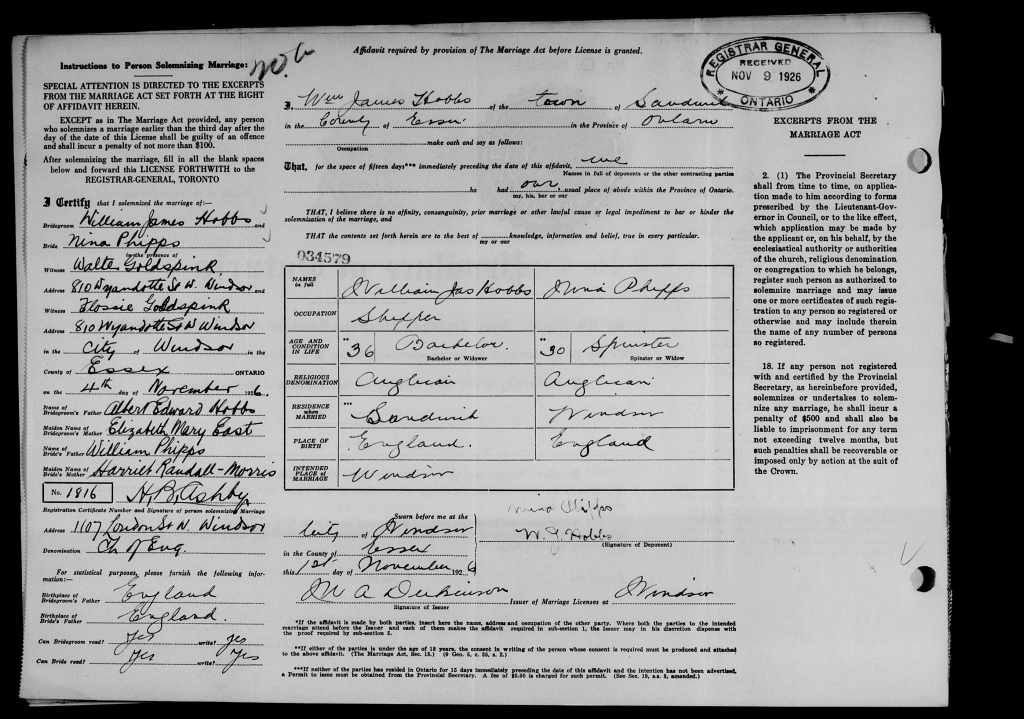 Affidavit required by provision of The Marriage Act before License is granted.
Instructions to Person Solemnizing Marriage:
SPECIAL ATTENTION IS DIRECTED TO THE EXCERPTS
FROM THE MARRIAGE ACT SET FORTH AT THE RIGHT
OF AFFIDAVIT HEREIN.
EXCEPT as in The Marriage Act provided, any person
who solemnizes a marriage earlier than the third day after the
day of the date of this License shall be guilty of an offence
and shall incur a penalty of not more than $100.
After solemnizing the marriage, fill in all the blank spaces
below and forward this LICENSE FORTHWITH to the
REGISTRAR-GENERAL, TORONTO
I Certify that I solemnized the marriage of:—
Bridegroom William James Hobbs and
Bride Nina Phipps
in the presence of
Witness Walter Goldspink
Address 810 Wyandotte St W. Windsor and
Witness Flossie Goldspink
Address 810 Wyandotte St W Windsor
in the City of Windsor in the
County of Essex ONTARIO
on the 4th day of November 1926.
Name of Bridegroom's Father Albert Edward Hobbs
Maiden Name of Bridegroom's Mother Elizabeth Mary East
Name of Bride's Father William Phipps
Maiden Name of Bride's Mother Harriet Randall-Morris
No. 1816 H. B. Ashby
Registration Certificate Number and Signature of person solemnizing Marriage
Address 1107 London St W. Windsor
Denomination Ch of Eng.
For statistical purposes, please furnish the following infor-
mation:—
Birthplace of Bridegroom's Father England
Birthplace of Bride's Father England.
Can Bridegroom read? Yes write? yes
Can Bride read? Yes write? Yes
I, Wm James Hobbs of the town of Sandwich
in the County of Essex in the Province of Ontario
Occupation make oath and say as follows:
That, for the space of fifteen days*** immediately preceding the date of this affidavit, we
Names in full of deponents or the other contracting parties
ha had our usual place of abode within the Province of Ontario.
my, his, her or our
THAT, I believe there is no affinity, consanguinity, prior marriage or other lawful cause or legal impediment to bar or hinder the
solemnization of the marriage, and
THAT the contents set forth herein are to the best of knowledge, information and belief, true in every particular.
my or our
034579
NAMES in full William Jas Hobbs Nina Phipps
OCCUPATION Shipper
AGE AND CONDITION IN LIFE **36 Bachelor. **30 Spinster
Bachelor or Widower Spinster or Widow
RELIGIOUS DENOMINATION Anglican Anglican
RESIDENCE when MARRIED *** Sandwich Windsor
PLACE OF BIRTH England. England
INTENDED PLACE OF MARRIAGE Windsor
Sworn before me at the
City of Windsor
in the County of Essex
this 1st day of November 1926
Nina Phipps
W. J. Hobbs
(Signature of Deponent)
Issuer of Marriage Licenses at Windsor
Signature of Issuer
*If the affidavit is made by both parties, insert here the name, address and occupation of the other party. Where both the parties to the intended
marriage attend before the Issuer and each of them makes the affidavit required in sub-section 1, the Issuer may in his discretion dispense with
the proof required by sub-section 2.
**If either of the parties is under the age of 18 years, the consent in writing of the person whose consent is required must be produced and attached
to the above affidavit. (The Marriage Act, Sec. 15.)
***If neither of the parties has resided in Ontario for 15 days immediately preceding the date of this affidavit and the intention has not been advertised,
a Permit to issue must be obtained from the Provincial Secretary. A fee of $5.00 is charged for such permit.
REGISTRAR GENERAL
RECEIVED
NOV 9 1926
ONTARIO
EXCERPTS FROM THE
MARRIAGE ACT
2. (1) The Provincial Secretary
shall from time to time, on applica-
tion made to him according to forms
prescribed by the Lieutenant-Gov-
ernor in Council, or to the like effect,
which application may be made by
the applicant or, on his behalf, by the
ecclesiastical authority or authorities
of the church, religious denomination
or congregation to which he belongs,
register such person as authorized to
solemnize marriage and may issue
one or more certificates of such regis-
tration to any person so registered or
otherwise and may include therein
the name of any number of persons
so registered.
18. If any person not registered
with and certified by the Provincial
Secretary, as hereinbefore provided,
solemnizes or undertakes to solem-
nize any marriage, he shall incur a
penalty of $500 and shall also be
liable to imprisonment for any term
not exceeding twelve months, but
such penalties shall be recoverable or
imposed only by action at the suit of
the Crown.